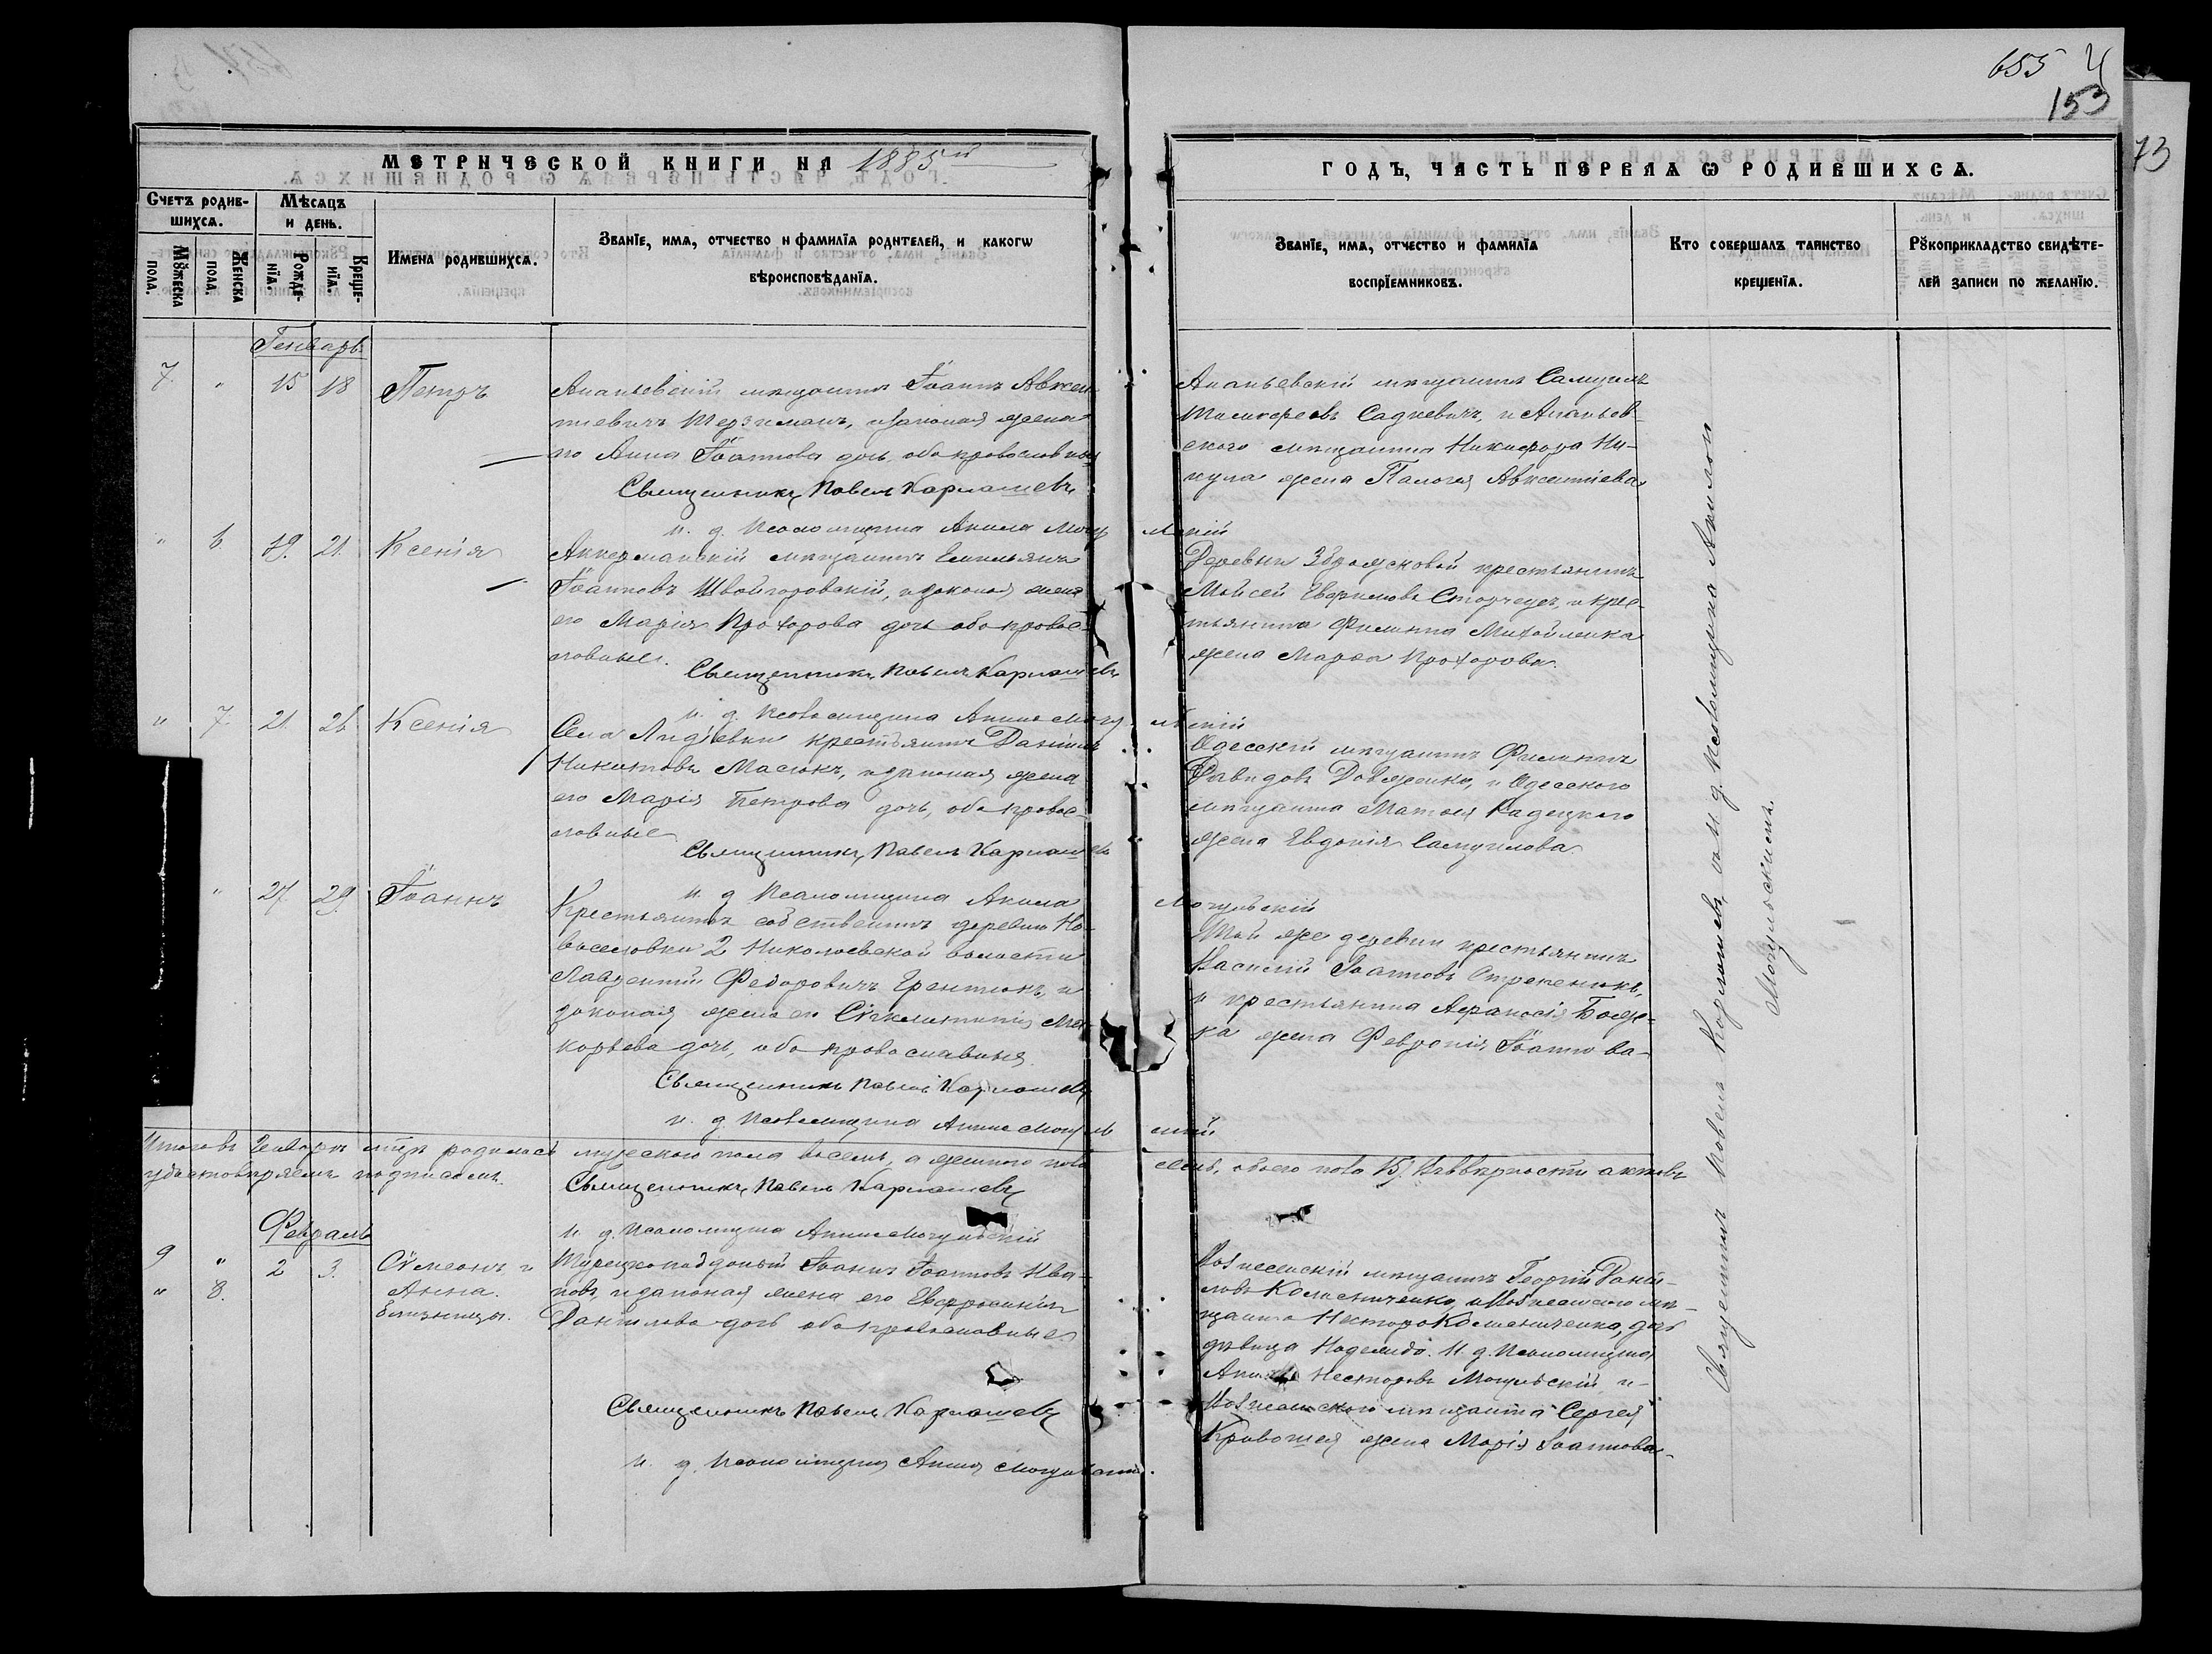 655 4
153
73
МЕТРИЧЕСКОЙ КНИГИ НА 1885й
ГОДЪ, ЧАСТЬ ПЕРВАЯ Ѡ РОДИВШИХСѦ.
Счетъ родив-
шихсѧ.
Мѣсѧцъ
и день.
Мꙋжеска
пола.
Женска
пола.
Рожде-
нїѧ.
Креще-
нїѧ.
Имена родившихсѧ.
Званїе, имѧ, отчество и фамилїѧ родителей, и какогѡ
вѣроисповѣданїѧ.
Званїе, имѧ, отчество и фамилїѧ
воспрїемниковъ.
Кто совершалъ таинство
крещенїѧ.
Рꙋкоприкладство свидѣте-
лей записи по желанїю.
Генварь
7. " 15 18 Петръ
Ананьевскій мѣщанинъ Іоаннъ Авксен
тіевичъ Терзиманъ, и законая жена
его Анна Іоаннова дочь, оба православныя
Священникъ Павелъ Карлашевъ
и. д. Псаломщика Акила Могу льскій
Ананьевскій мѣщанинъ Самуилъ
Тимофеевъ Садкевичъ, и Ананьев-
скаго мѣщанина Никифора Ни-
кула жена Палагея Авксентіева
" 6. 19. 21. Ксенія
Аккерманскій мѣщанинъ Емильянъ
Іоанновъ Швайгоровскій, и законая жена
его Марія Прохорова дочь оба правос-
лавные.
Священникъ Павелъ Карлашевъ
и. д. Псаломщика Акила Могу льскій
Деревни крестьянинъ
Мойсей Евфимовъ и крес-
тьянина Филиппа Михайленка
жена Марѳа Прохорова.
" 7. 21. 26 Ксенія
Села Лидіевки крестьянинъ Даніилъ
Никитовъ Масюкъ, и законая жена
его Марія Петрова дочь, оба правос-
лавные
Священникъ Павелъ Карлашевъ
и. д. Псаломщика Акила Могульскій
Одесскій мѣщанинъ Филиппъ
Давидовъ Довженко, и Одесского
мѣщанина Матѳея Радецкого
жена Евдокія Самуилова
" 27. 29. Іоаннъ
Крестьянинъ собственникъ деревни Но-
воселовки 2 Николаевской волости
Лаврентій Федоровичъ и
законая жена его Сѵнклитикія Ма-
карьева дочь, оба православныя
Священникъ Павелъ Карлашевъ
и. д. Псаломщика Акила Могульскій
Той же деревни крестьянинъ
Василій Іоанновъ
и крестьянина Афанасія
ка жена Февронія Іоаннова-
Итого въ Генварѣ м-цѣ родилось мужеского пола восемь, а женского пола семь, обоего пола 15. Въ вѣрности актовъ
удостовѣряемъ подписомъ.
Священникъ Павелъ Карлашевъ
и. д. Псаломщика Акила Могульскій
Февраль
9 " 2 3. Сѵмеонъ и
" 8. Анна.
Близнецы.
Турецкоподданый Іоаннъ Іоанновъ Ива-
новъ, и законая жена его Евфросинія
Даніилова дочь оба православные
Священникъ Павелъ Карлашевъ
и. д. Псаломщика Акила Могульскій.
Вознесенскій мѣщанинъ Георгій Даніи-
ловъ и Вознесенского мѣ-
щанина Нестора дочь
дѣвица Надежда. И. д. Псаломщика
Акила Несторовъ Могульскій, и
Вознесенского мѣщанина Сергея
Кривошея жена Марія Іоаннова-
Священникъ Павелъ Карлашевъ, съ и. д. Псаломщика Акилою
Могульскимъ.